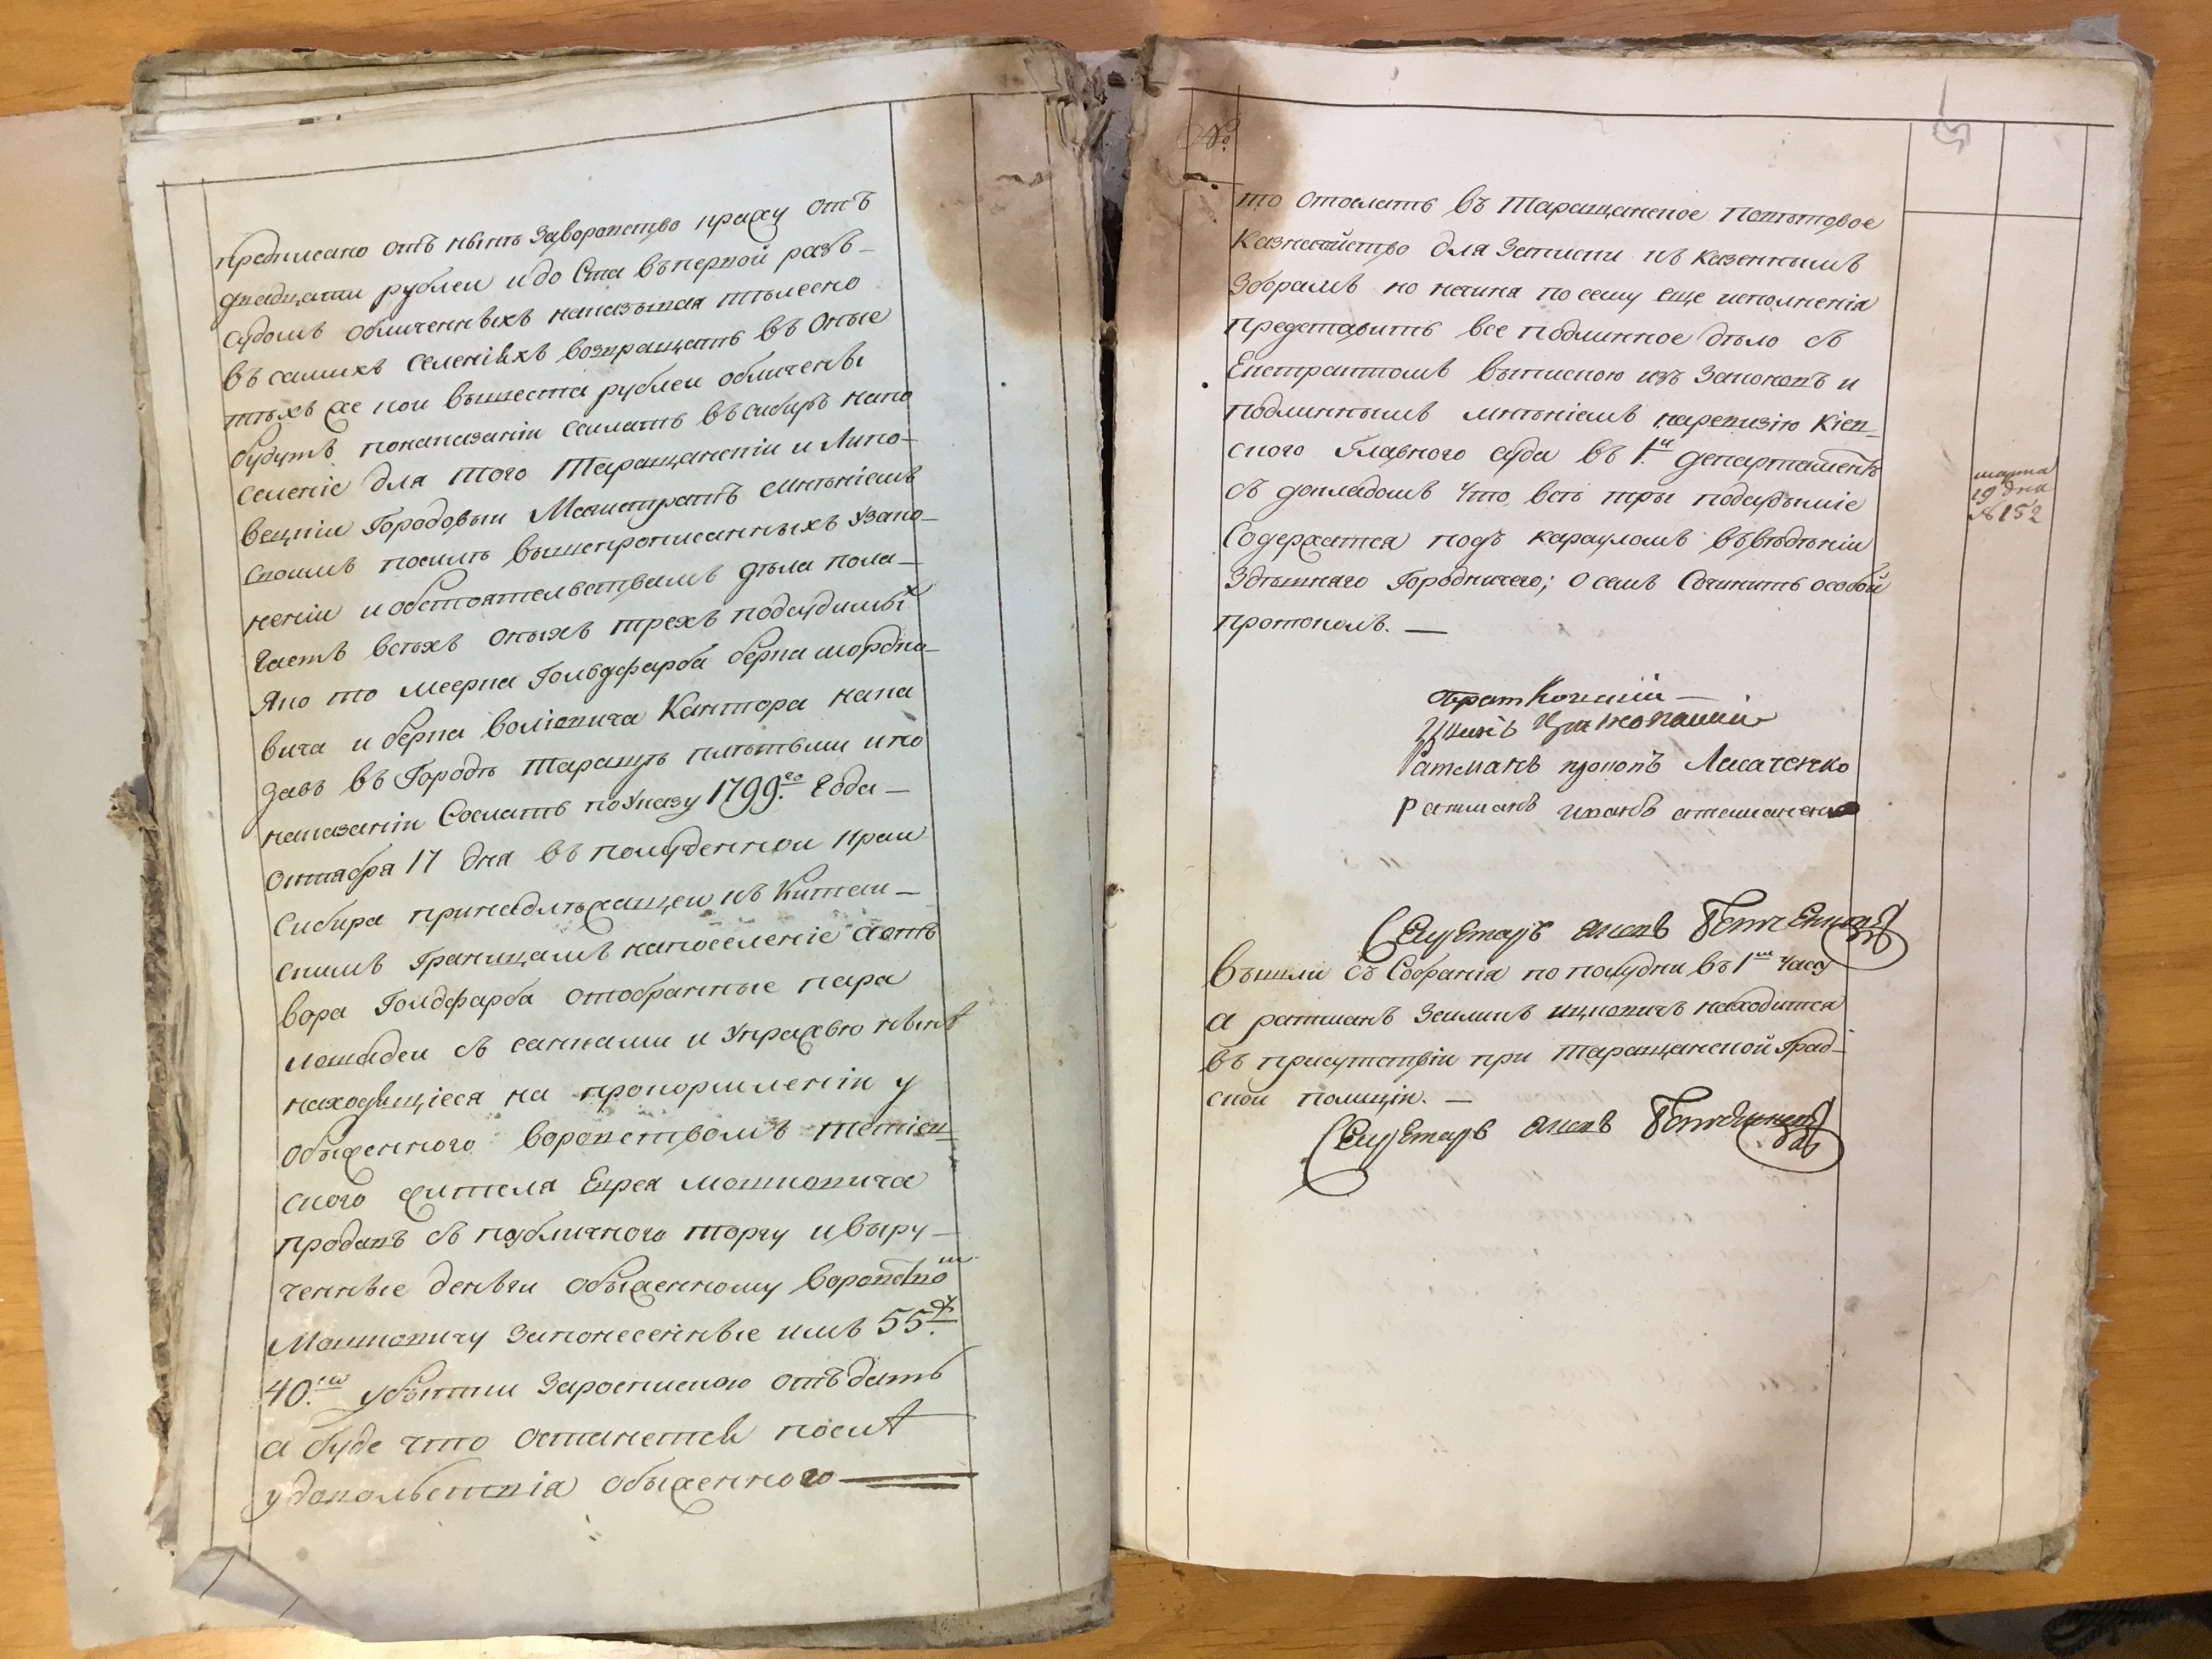 предписано отъ нынѣ заворовство кражу отъ
двадцати рублеи идо ста въпервой разъ-
судомъ обличенныхъ наказывая тѣлесно
въ самихъ селеніяхъ возвращать въ оные
тѣхъ же кои вышеста рублеи обличены
будутъ понаказаніи ссылать въ сибирь напо
селеніе для того Таращанскіи и Липо-
вецкіи Городовыи Магистратъ мнѣніемъ
своимъ посилѣ вышепрописанныхъ узако-
неніи и обстоятельствамъ дѣла пола-
гаетъ всѣхъ оныхъ трехъ подсудимы х
Яко то меерка Гольдфарба берка мордко-
вича и берка волковича Кантора нака
завъ въ Городѣ таращѣ плѣтьми и по
наказаніи Сослать поУказу 1799.го Года-
октября 17 дня въ полуденнои краи
Сибири принадлѣжащеи къ Китаи-
скимъ Границамъ напоселеніе а отъ
вора Голдфарба отобранные пара
лошадеи съ санками и упражью нынѣ
находящіеся на прокормленіи у
обиженного воровствомъ тетіев
ского жителя Еврея мошковича
продавъ съ публичного торгу и выру-
ченные деньги обиженному воровство м
Мошковичу запонесенные имъ 55.ру
40.ко убытки зароспиською отъдать
а буде что останется послѣ
удовольствія обиженного
№
то отослать въ Таращанское Повѣтовое
Казначейство для записки къ казеннымъ
зборамъ но нечиня по сему еще исполненія
представить все подлинное дѣло съ
Екстрактомъ выпискою изъ законовъ и
подлиннымъ мнѣніемъ наревизію Кіев-
ского Главного суда въ 1.й департаментъ
съ докладомъ что, всѣ тры подсудиміе
Содержатся подъ карауломъ въвѣдѣніи
Здѣшняго Городничего; о семъ Сочинить особой
протоколъ.-
марта
19 дня
№ 152
Ратманъ прокопъ Лисаченко
ратманъ иванъ
Секретарь яковъ
вышли съ Собранія по полудни въ 1м часу
а ратманъ Зелминъ ицковичъ находится
въ присутствіи при таращанской Град-
ской полиціи.-
Секретарь яковъ